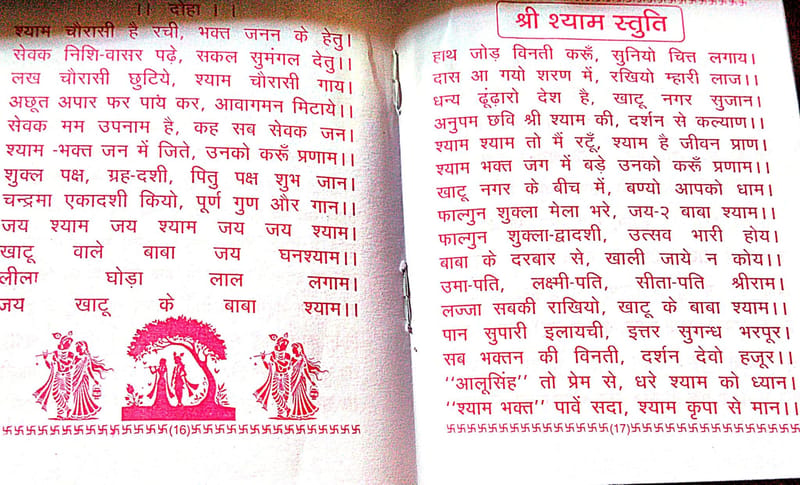 ।। दोहा ।।
श्याम चौरासी है रची, भक्त जनन के हेतु।
सेवक निशि-वासर पढ़े, सकल सुमंगल देतु।।
लख चौरासी छुटिये, श्याम चौरासी गाय।
अछूत अपार फर पाय कर, आवागमन मिटाये।।
सेवक मम उपनाम है, कह सब सेवक जन।
श्याम -भक्त जन में जिते, उनको करूँ प्रणाम।।
शुक्ल पक्ष, ग्रह-दशी, पितु पक्ष शुभ जान।
चन्द्रमा एकादशी कियो, पूर्ण गुण और गान।।
जय श्याम जय श्याम जय जय श्याम।
खाटू वाले बाबा जय घनश्याम।।
लीला घोड़ा लाल लगाम।
जय खाटू के बाबा श्याम।।
(16)
श्री श्याम स्तुति
हाथ जोड़ विनती करूँ, सुनियो चित्त लगाय।
दास आ गयो शरण में, रखियो म्हारी लाज।।
धन्य ढूंढ़ारो देश है, खाटू नगर सुजान।
अनुपम छवि श्री श्याम की, दर्शन से कल्याण।।
श्याम श्याम तो मैं रटूँ, श्याम है जीवन प्राण।
श्याम भक्त जग में बड़े उनको करूँ प्रणाम।।
खाटू नगर के बीच में, बण्यो आपको धाम।
फाल्गुन शुक्ला मेला भरे, जय-२ बाबा श्याम।।
फाल्गुन शुक्ला-द्वादशी, उत्सव भारी होय।
बाबा के दरबार से, खाली जाये न कोय।।
उमा-पति, लक्ष्मी-पति, सीता-पति श्रीराम।
लज्जा सबकी राखियो, खाटू के बाबा श्याम।।
पान सुपारी इलायची, इत्तर सुगन्ध भरपूर।
सब भक्तन की विनती, दर्शन देवो हजूर।।
"आलूसिंह" तो प्रेम से, धरे श्याम को ध्यान।
"श्याम भक्त" पावें सदा, श्याम कृपा से मान।।
(17)